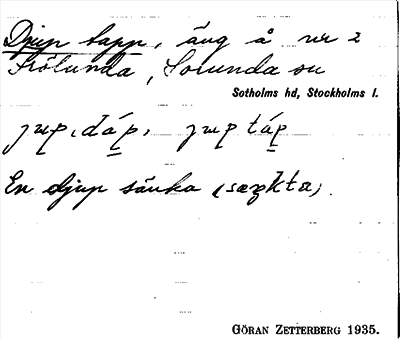 Djup tapp, äng å nr 2
Frölunda, Sorunda sn
Sotholms hd, Stockholms l.
En djup sänka
GÖRAN ZETTERBERG 1935.